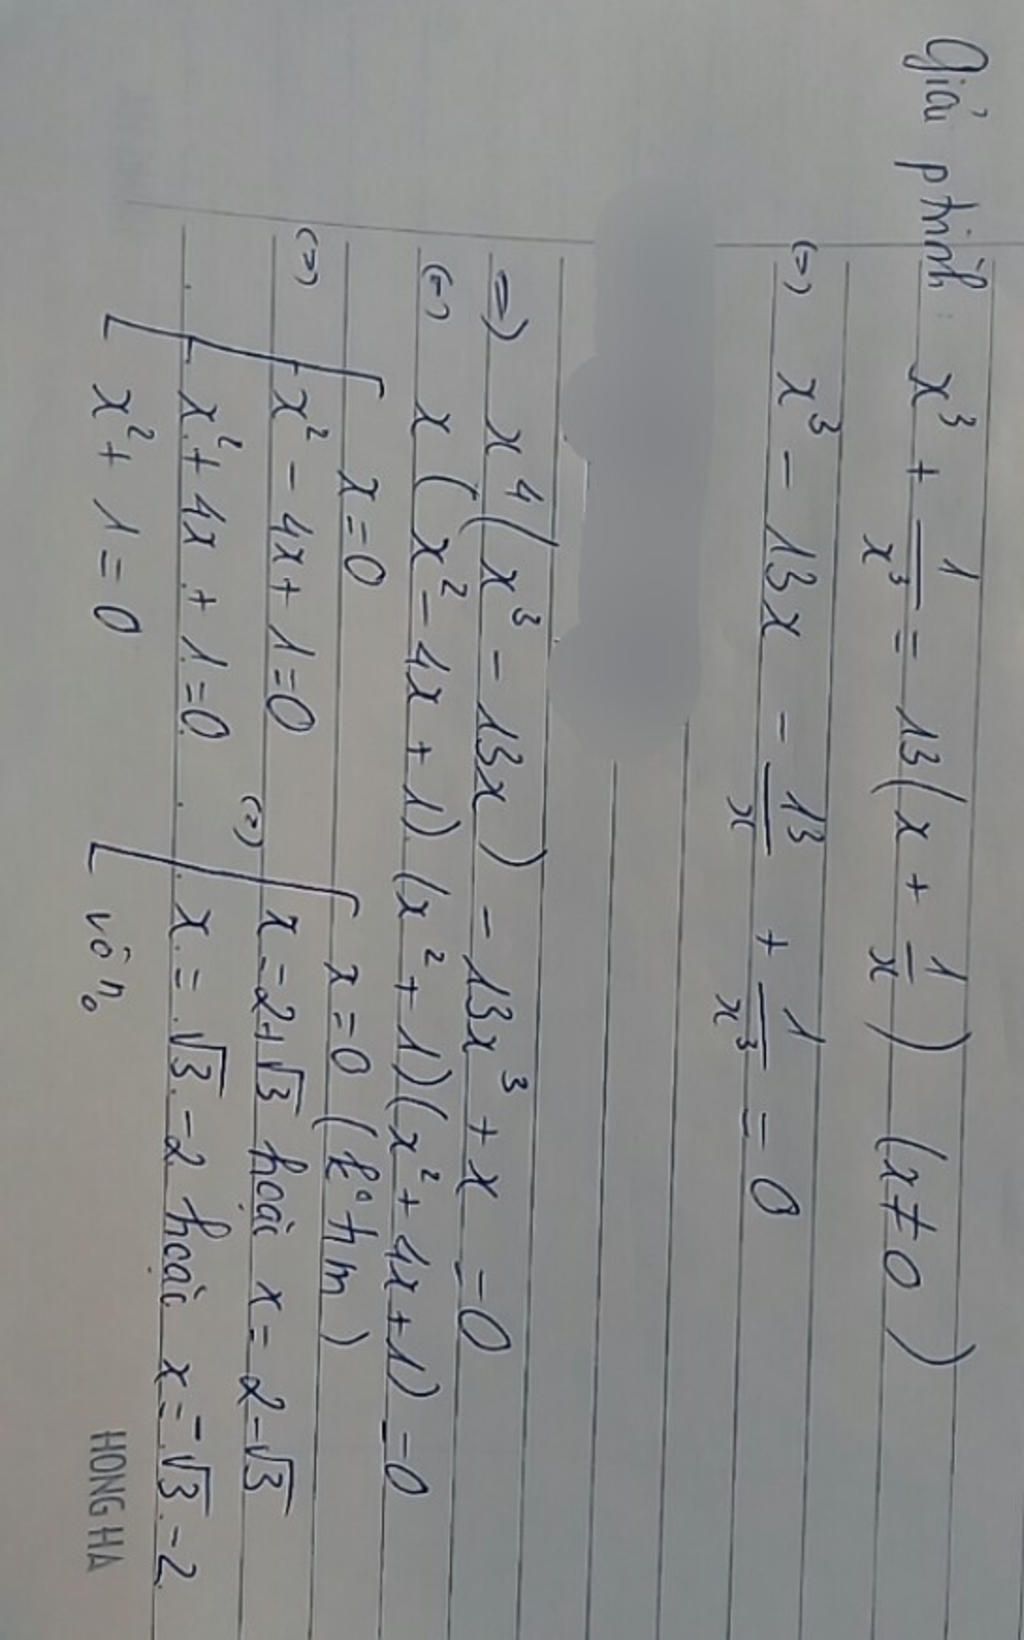 Giải ptrình: x³ + 1/x³ = 13(x + 1/x) (x≠0)
(=) x³ - 13x - 13/x + 1/x³ = 0
=) x⁴(x³ - 13x) - 13x³ + x = 0
(=) x (x² - 4x + 1) (x² + 1)(x² + 4x + 1) = 0
x = 0
(=) x² - 4x + 1 = 0
x² + 4x + 1 = 0
x² + 1 = 0
x = 0 (k° tm)
(=) x = 2+√3 hoặc x = 2-√3
x = √3 - 2 hoặc x = -√3 - 2
vô n₀
HONG HA